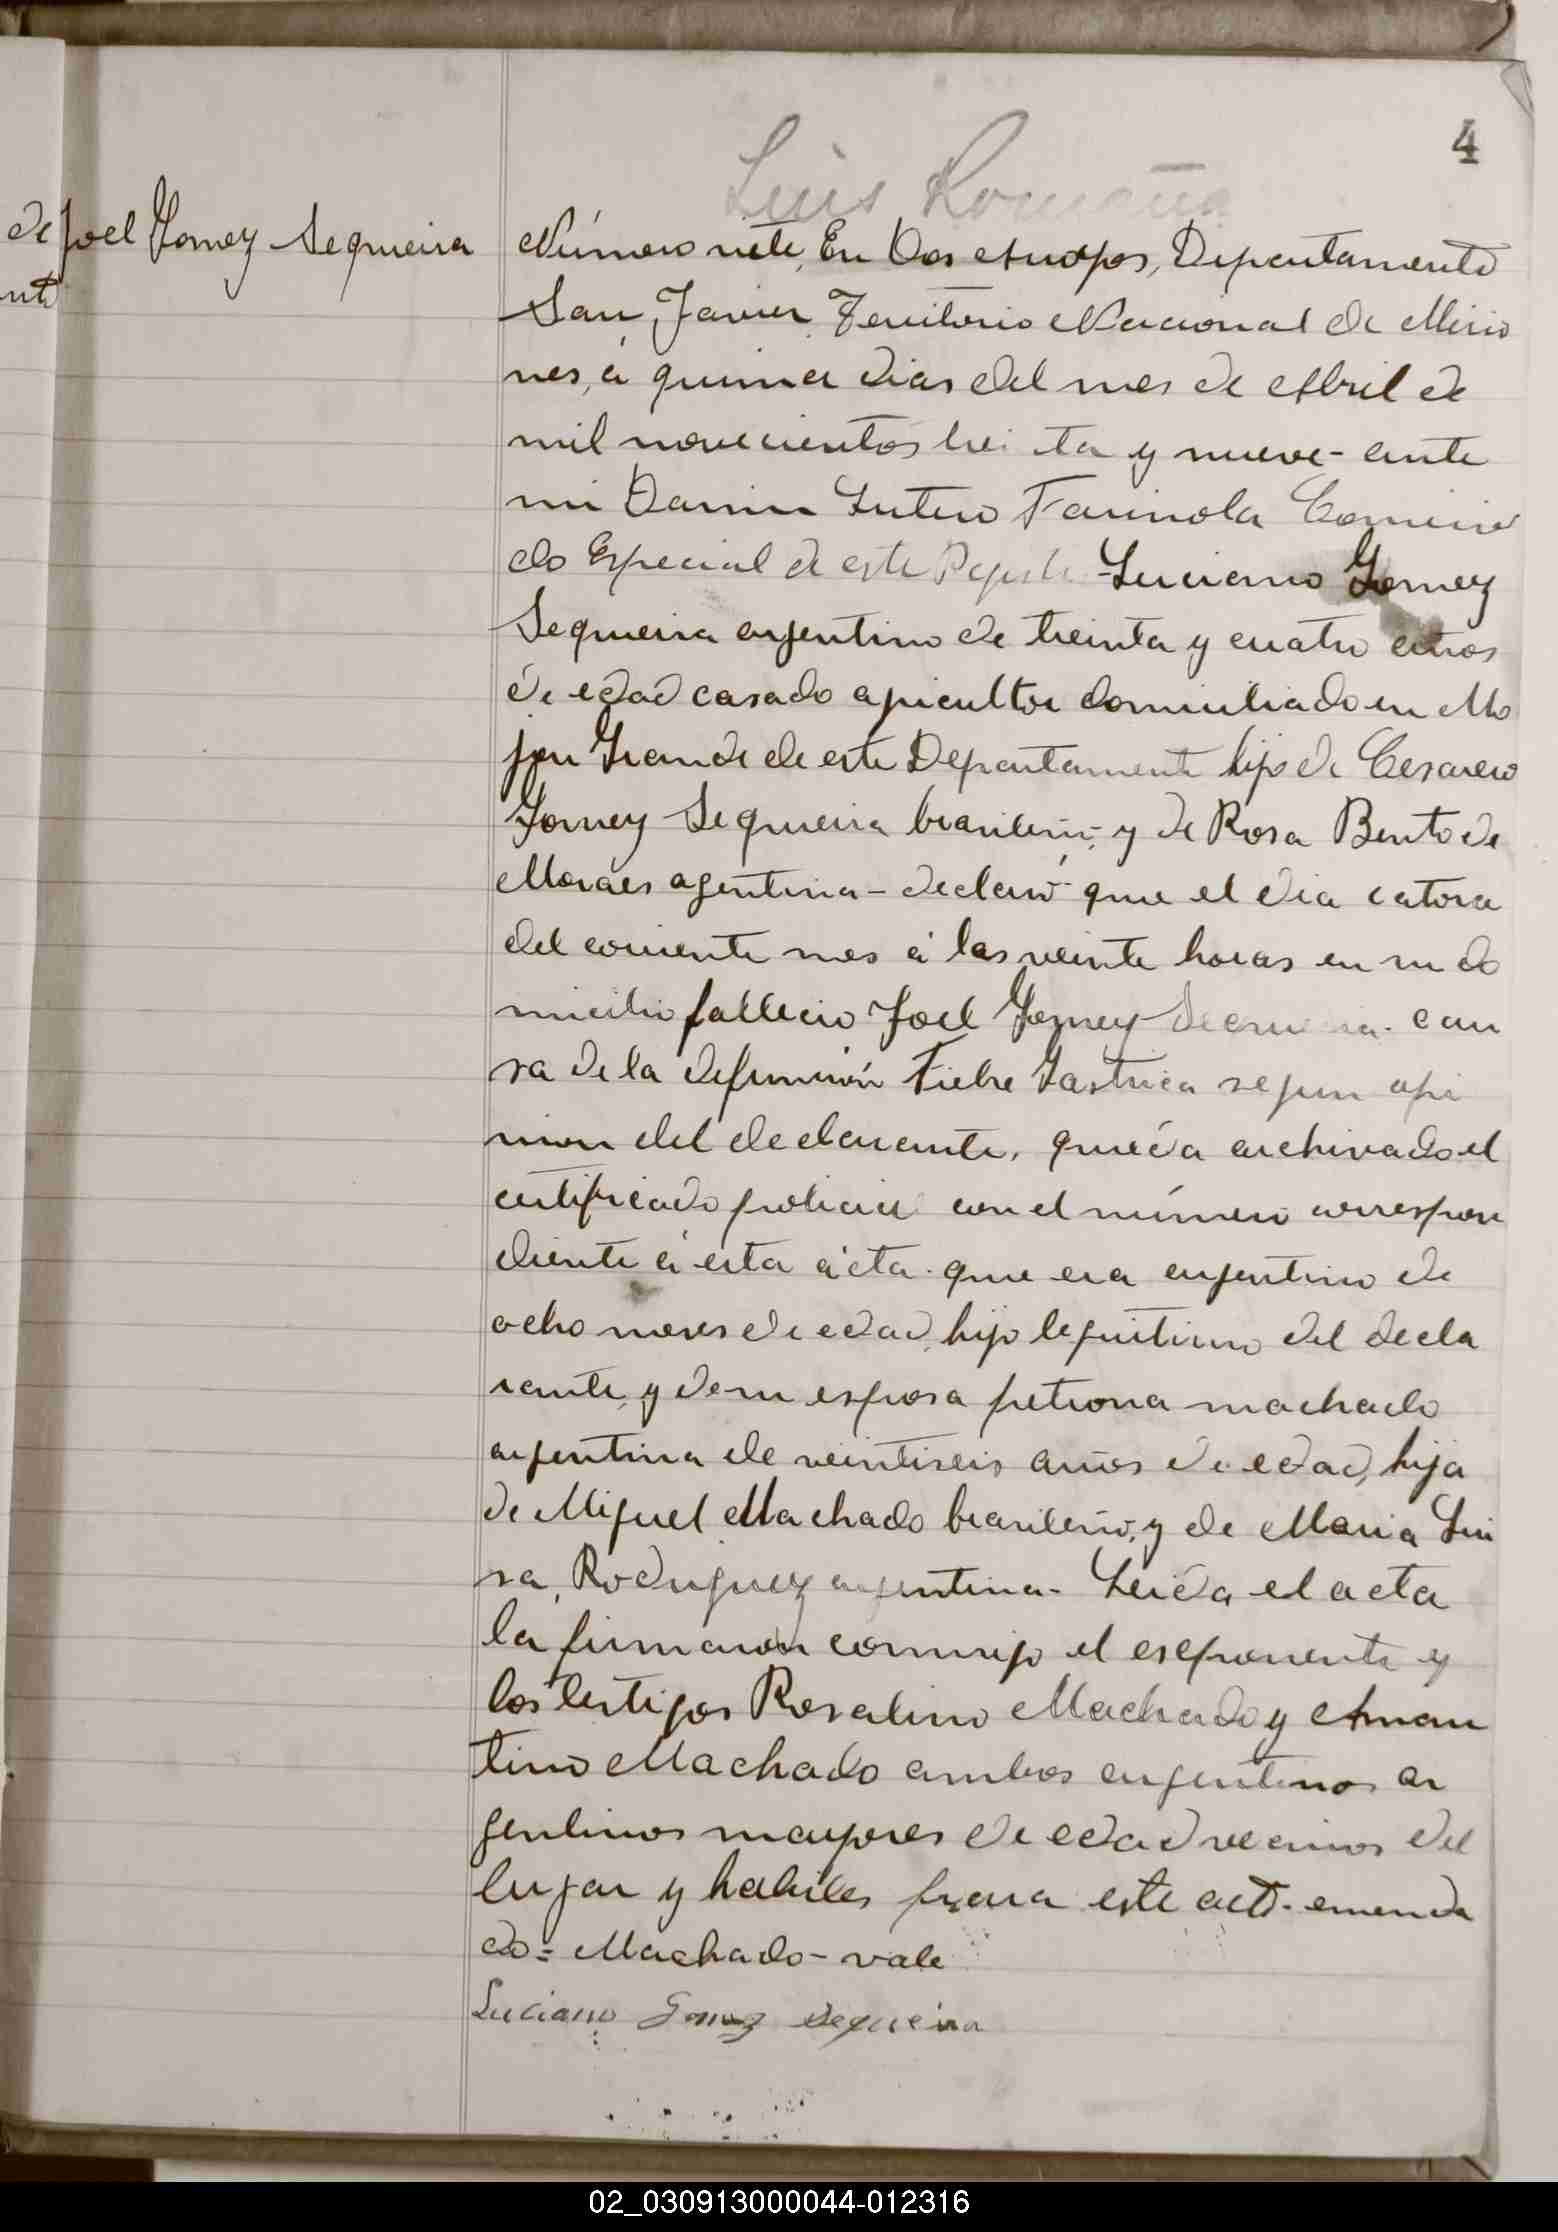 4
Luis Romaña
de Joel Gomez Sequeira
nte
Número siete, En Dos Arroyos, Departamento
San Javier Territorio Nacional de Misio
nes, á quince dias del mes de Abril de
mil novecientos trei ta y nueve - ante
mi Lutero Farinola Comisio
do Especial de este - Luciano Gomez
Sequeira argentino de treinta y cuatro años
de edad casado apicultor domiciliado en Mo
jon Grande de este Departamento hijo de Cesareo
Gomez Sequeira brasileño, y de Rosa Bento de
Moraes agentina - declaró que el dia catorce
del corriente mes á las veinte horas en su do
micilio fallecio Joel Gomez Sequeira. cau
sa de la defunción Fiebre Gastrica segun opi
nion del declarante, queda archivado el
certificado policial con el número correspon
diente á esta acta. que era argentino de
ocho meses de edad, hijo legitimo del decla
rante, y de su esposa petrona machado
argentina de veintiseis años de edad, hija
de Miguel Machado brasileño, y de Maria Lui
sa, Rodriguez argentina - Leida el acta
la firmaron conmigo el exponente y
los testigos Rosalino Machado y Aman
tino Machado ambos argentinos ar
gentinos mayores de edad vecinos del
lugar y habiles para este acto. emenda
do = Machado - vale
Luciano Gomez Sequeira
02_030913000044-012316